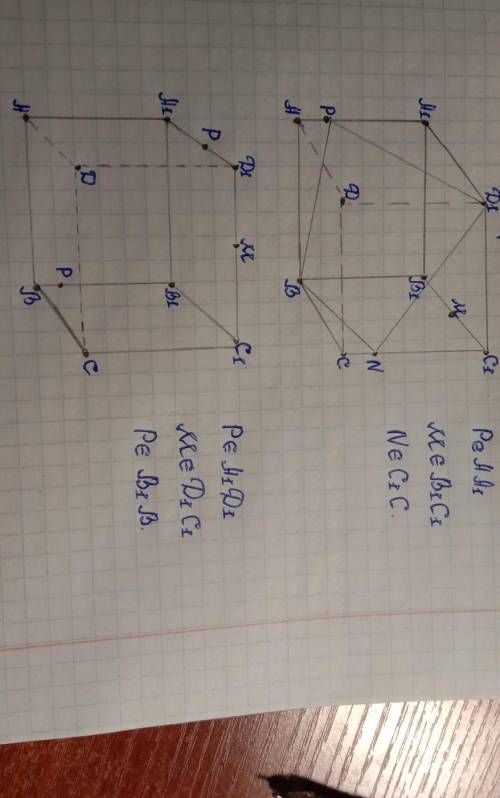 D1 C1
M
A1 B1
N
D C
P
A B
P∈AA1
M∈B1C1
N∈C1C.
D1 M C1
P
A1 B1
D C
P
A B
P∈A1D1
M∈D1C1
P∈B1B.